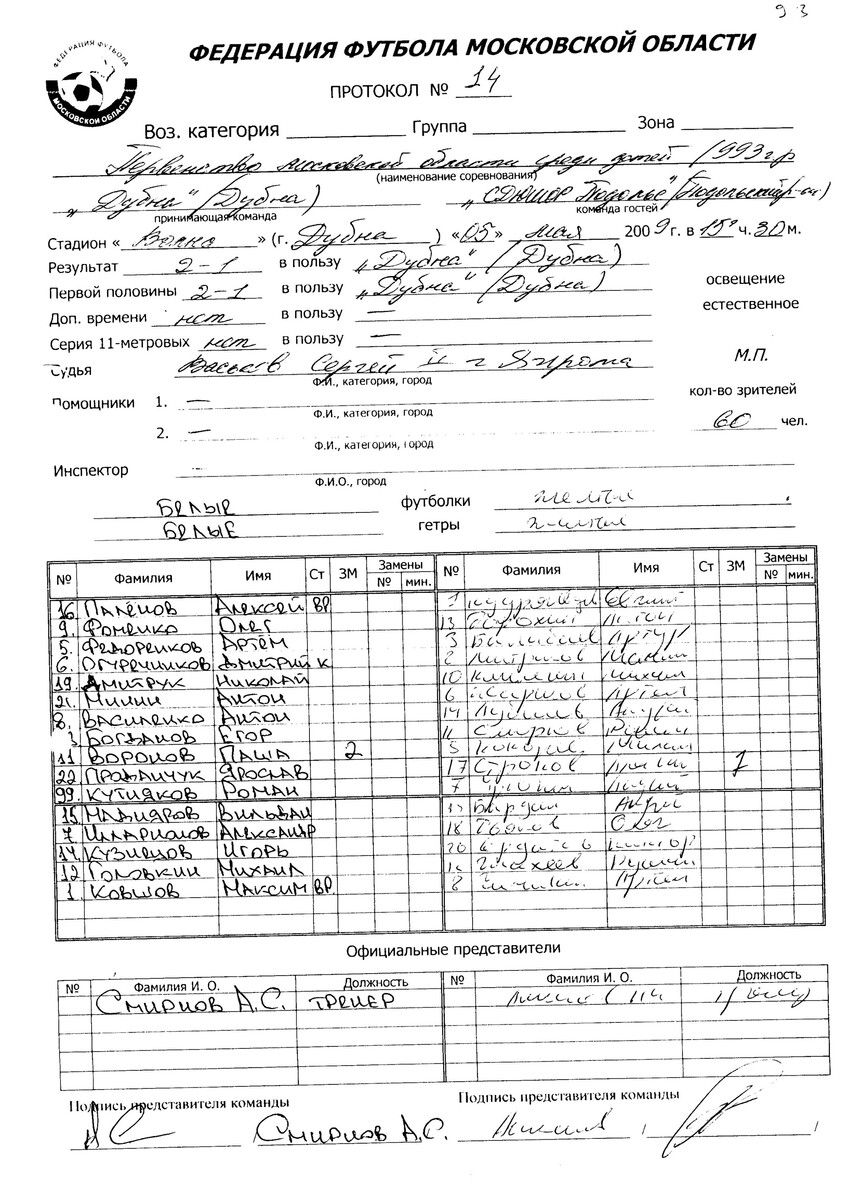 93
ФЕДЕРАЦИЯ ФУТБОЛА
МОСКОВСКОЙ ОБЛАСТИ
ФЕДЕРАЦИЯ ФУТБОЛА МОСКОВСКОЙ ОБЛАСТИ
ПРОТОКОЛ № 14
Воз. категория Группа Зона
Первенство Московской области среди детей 1993 г р
(наименование соревнования)
„Дубна" (Дубна) „СДЮШОР Подолье" (Подольский р-он)
принимающая команда команда гостей
Стадион « Волна » (г. Дубна ) «05» мая 2009 г. в 15 ч. 30 м.
Результат 2-1 в пользу „Дубна" (Дубна)
Первой половины 2-1 в пользу „Дубна" (Дубна) освещение
Доп. времени нет в пользу — естественное
Серия 11-метровых нет в пользу —
Судья Сергей II г Яхрома М.П.
Ф.И., категория, город
Помощники 1. — кол-во зрителей
Ф.И., категория, город
2. — 60 чел.
Ф.И., категория, город
Инспектор —
Ф.И.О., город
БЕЛЫЕ футболки
БЕЛЫЕ гетры
№ Фамилия Имя Ст ЗМ Замены № мин. № Фамилия Имя Ст ЗМ Замены № мин.
16 Паленов Алексей ВР 1
9. Фоменко Олег 13 Антон
5. Федоренков Артём 3 Артур
6. Огуречников Дмитрий К 2
19 Дмитрук Николай 10 Михаил
21. Минин Антон 6 Артем
8. Василенко Антон 14 Андрей
3 Богданов Егор 11 Смирнов Роман
11 Воронов Паша 2 5
22 Прожанчук Ярослав 17 Строков 1
99 Кутняков Роман 7
15 Мавидров Вильдан Андрей
7 Илларионов Александр 18 Олег
14 Кузнецов Игорь 20
12 Головкин Михаил
1. Ковшов Максим ВР 8 Артем
Официальные представители
№ Фамилия И. О. Должность № Фамилия И. О. Должность
Смирнов А.С. тренер
Подпись представителя команды Подпись представителя команды
Смирнов А.С.